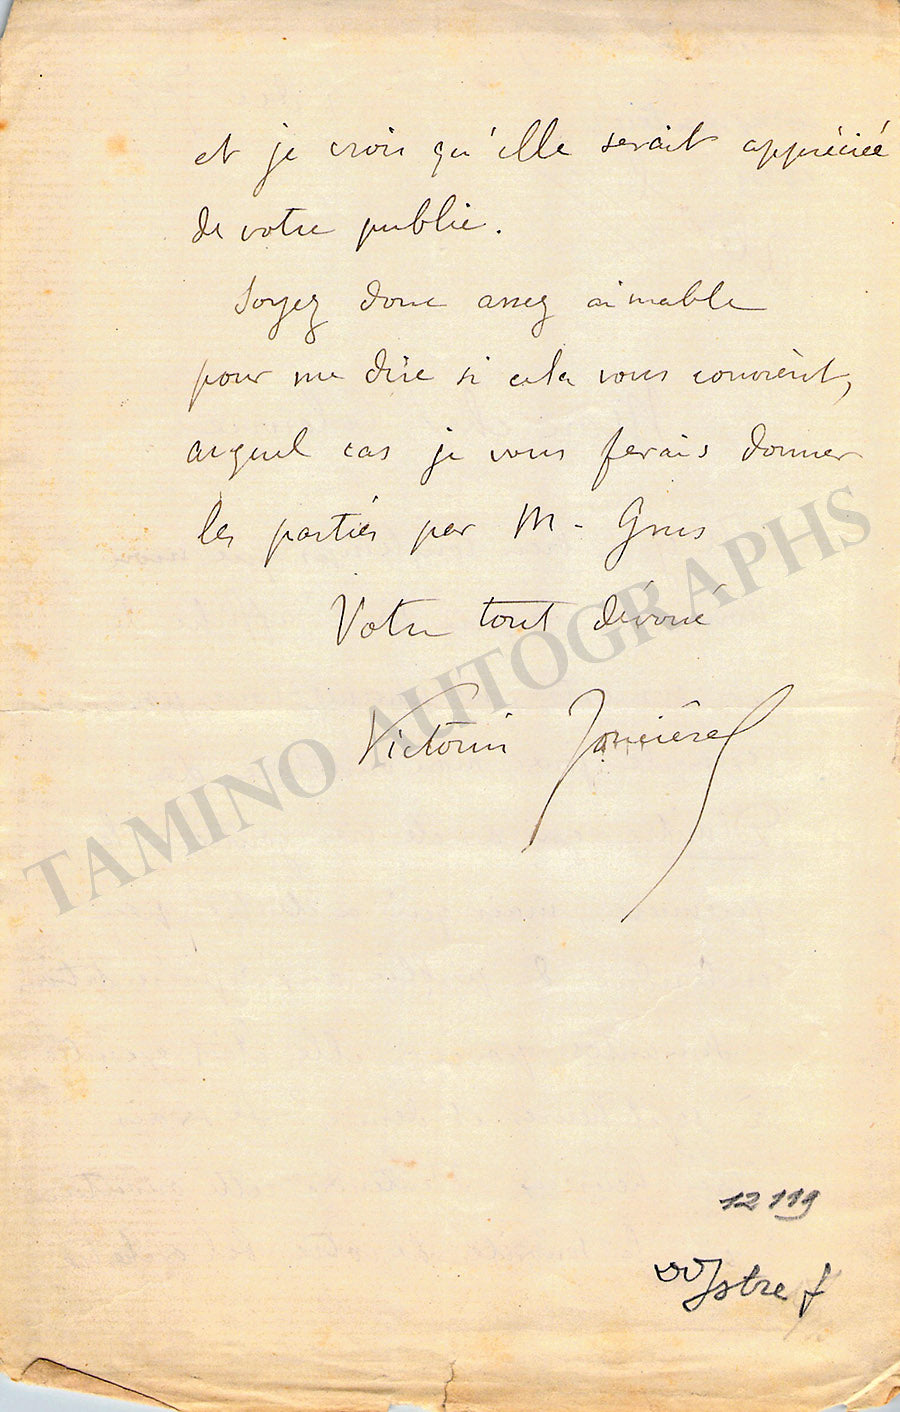 et je crois qu'elle serait appréciée
de votre public.
Soyez donc assez aimable
pour me dire si cela vous convient,
auquel cas je vous ferais donner
les parties par M. Grus
Votre tout dévoué
Victorin Joncières
TAMINO AUTOGRAPHS
12119